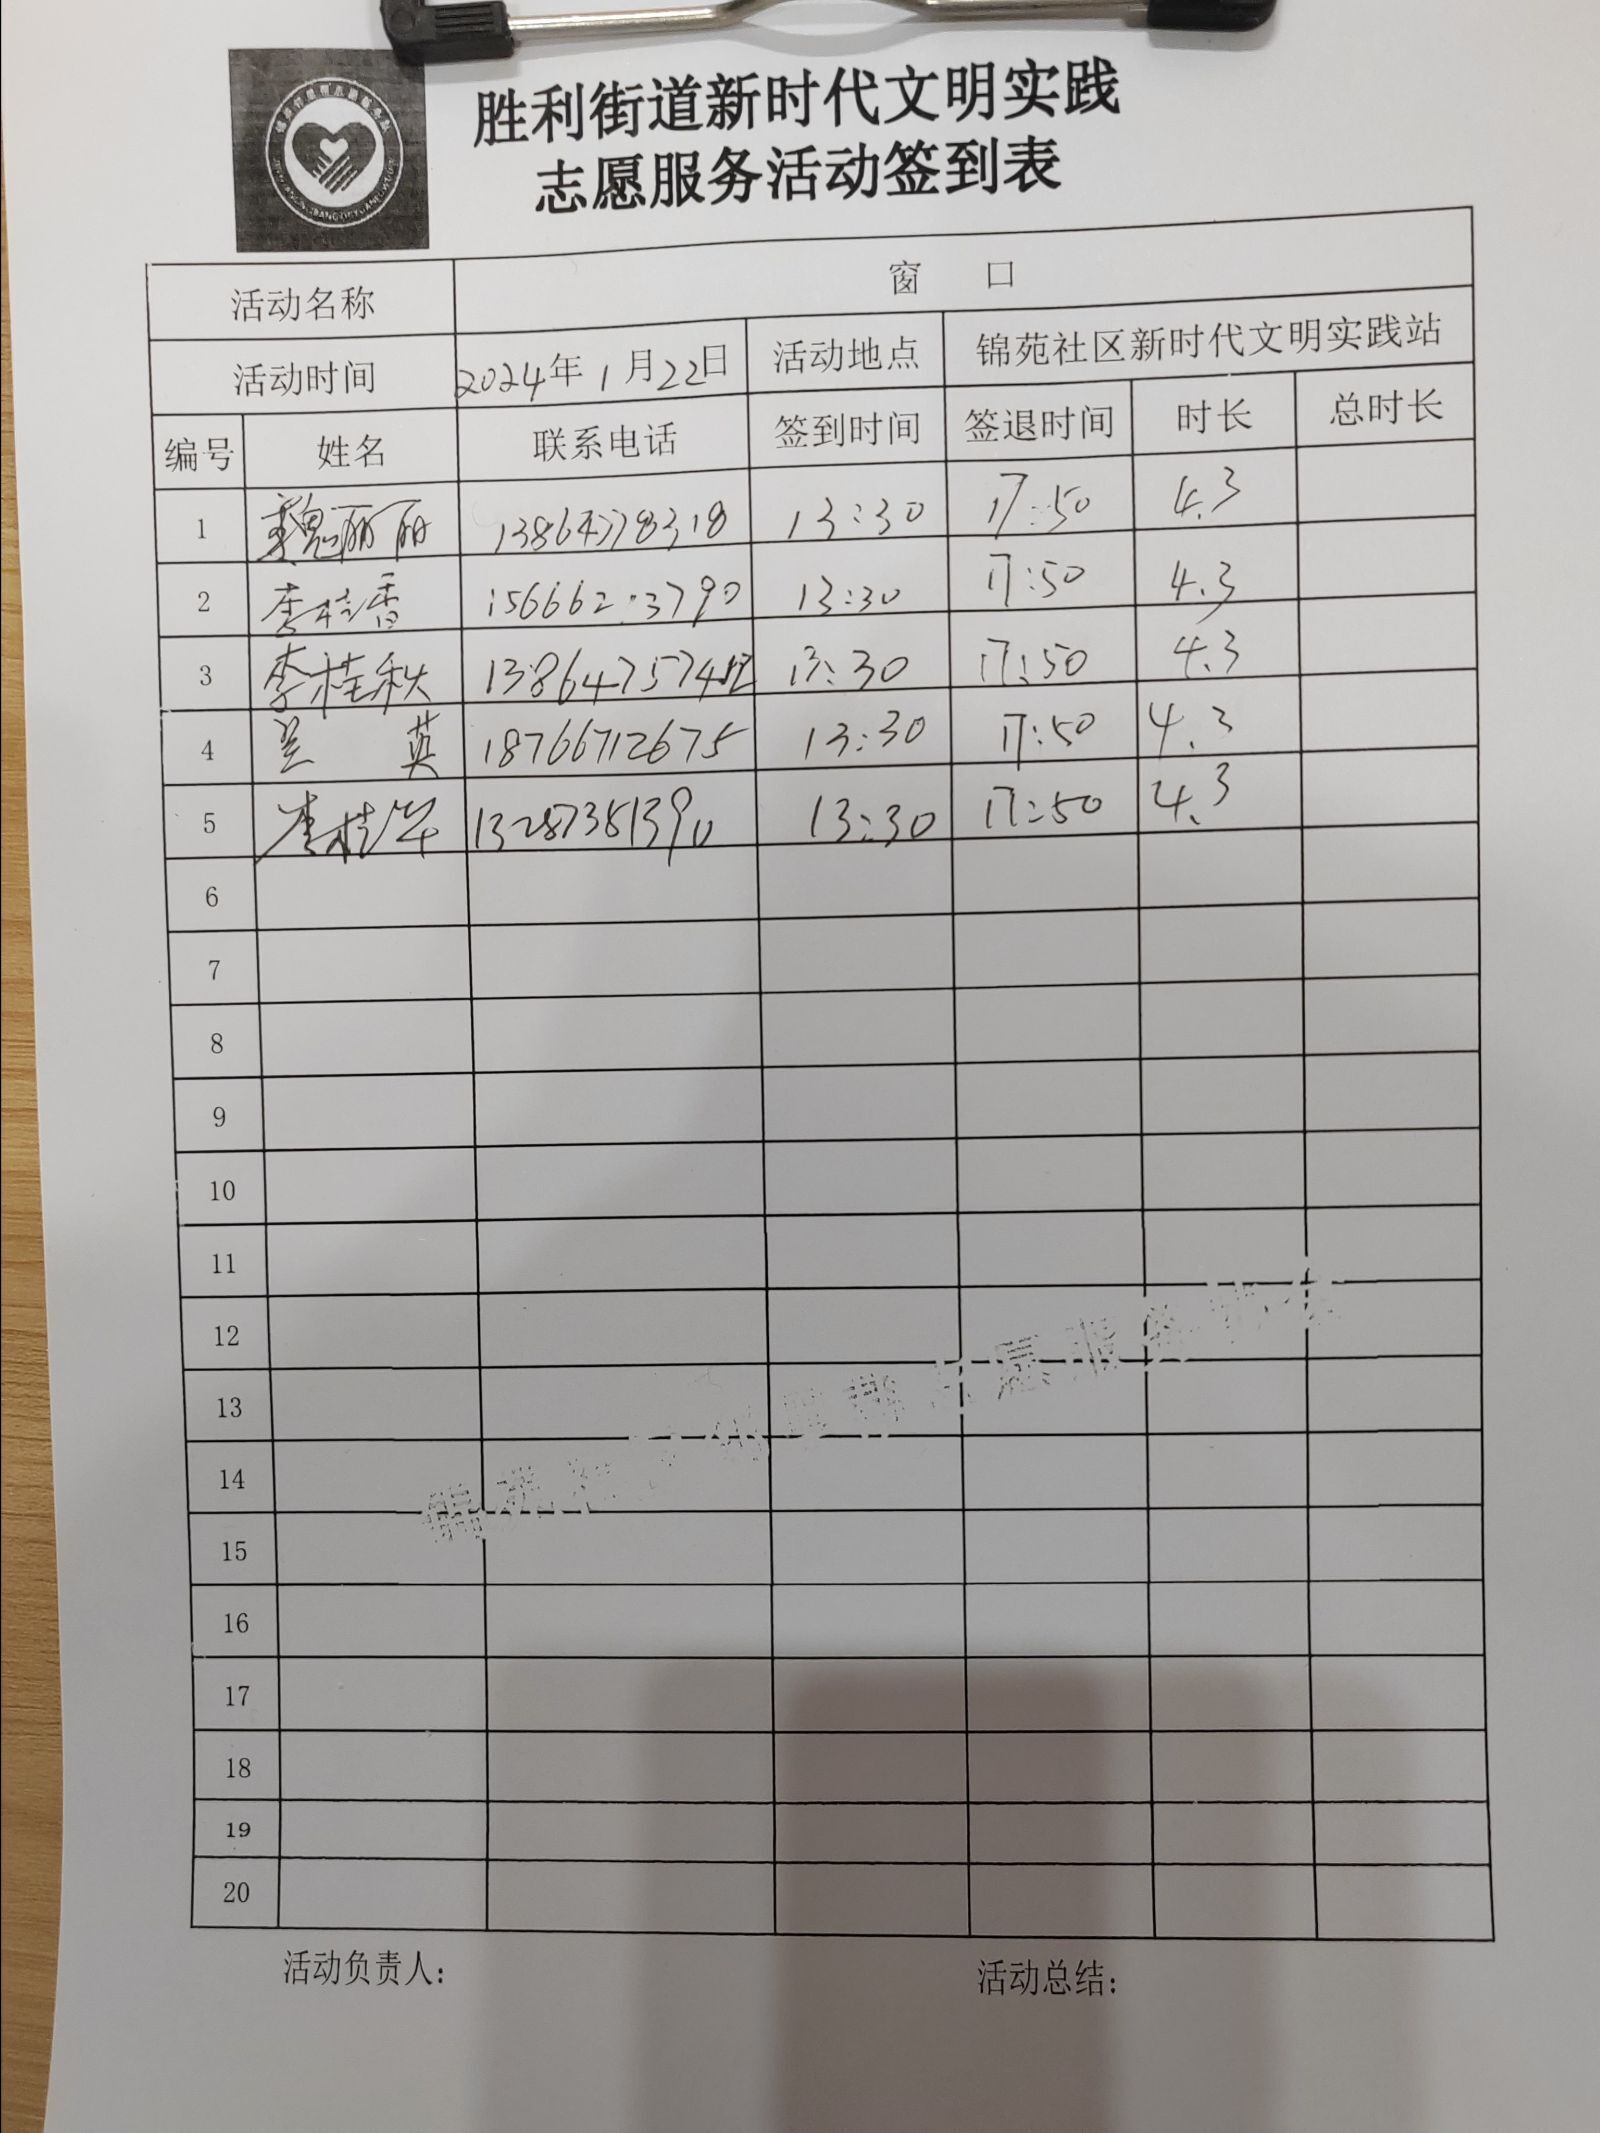 胜利街道新时代文明实践
志愿服务活动签到表
活动名称 窗 口
活动时间 2024年1月22日 活动地点 锦苑社区新时代文明实践站
编号 姓名 联系电话 签到时间 签退时间 时长 总时长
1 魏丽丽 13864778318 13:30 17:50 4.3
2 李桂香 13:30 17:50 4.3
3 李桂秋 13:30 17:50 4.3
4 兰 英 18766712675 13:30 17:50 4.3
5 李桂华 13287381390 13:30 17:50 4.3
6
7
8
9
10
11
12
13
14
15
16
17
18
19
20
活动负责人: 活动总结: